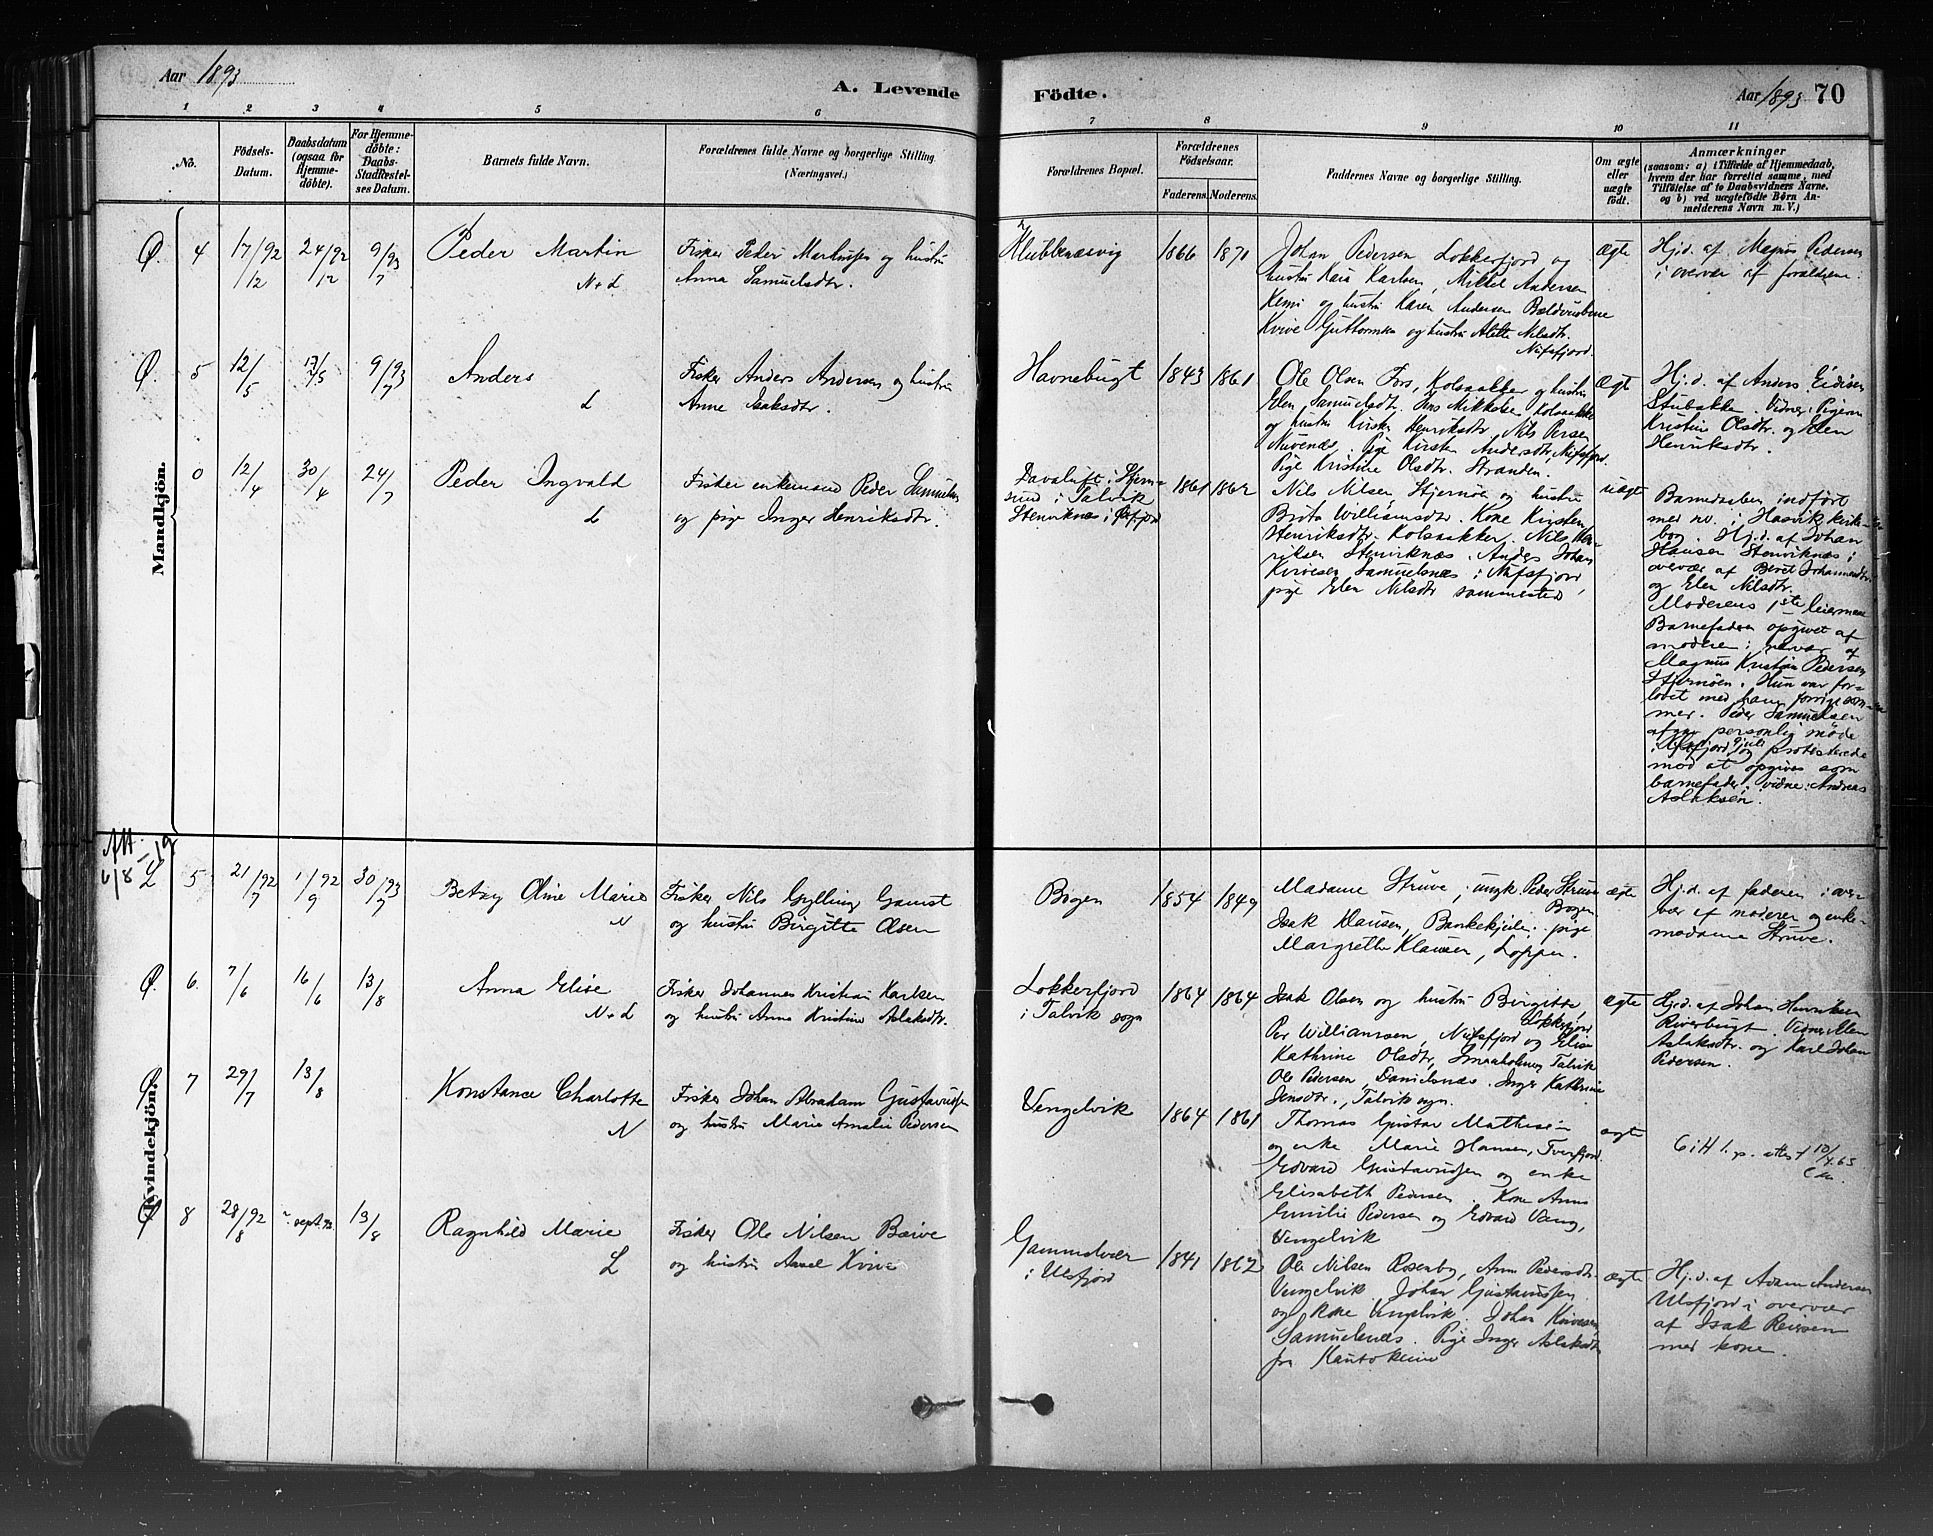 Aar 1893
A. Levende
Födte.
Aar 1893 70
1 2 3 4 5 6 7 8 9 10 11
No.
Födsels-
Datum.
Daabsdatum
(ogsaa for
Hjemme-
döbte).
For Hjemme-
döbte:
Daabs-
Stadfæstel-
ses Datum.
Barnets fulde Navn.
Forældrenes fulde Navne og borgerlige Stilling
(Næringsvei.)
Forældrenes Bopæl.
Forældrenes
Födselsaar.
Faderens. Moderens.
Faddernes Navne og borgerlige Stilling.
Om ægte
eller
uægte
födt.
Anmærkninger
(saasom: a) i Tilfælde af Hjemmedaab,
hvem der har forrettet samme, med
Tilföielse af to Daabsvidners Navne.
og b) ved uægtefödte Børn An-
melderens Navn m. V.)
Mandkjön.
Ø. 4 17/12 92 24/12 92 9/7 93
Peder Martin
N+L
Fisker Peder Martinsen og hustru
Anna Samuelsdtr.
Klubbnæsvig 1866 1871
Johan Pedersen Lokkerfjord og
hustru Kaia Karlsen, Mikkel Andersen
Kemi og hustru Karen Andersen
Kvive Guttormsen og hustru Alette Nilsdtr.
Nufsfjord.
ægte
Hj.d. af Magnus Pedersen
i overvær af forældrene.
Ø. 5 12/5 17/5 9/7 93
Anders
L
Fisker Anders Andersen og hustru
Anne Isaksdtr.
Havnebugt 1843 1861
Ole Olsen Fors, Kolsaakker og hustru
Elen Samuelsdtr. Jens Mikkelsen Kolsaakker
og hustru Kirsten Henriksdtr. Nils Persen
Nuvenæs. Pige Kirsten Andersdtr, Nufsfjord.
Pige Kristine Olsdtr. Stranden.
Ægte
Hj.d. af Anders Eidisen
Stubakke. Vidner: Pigerne
Kristine Olsdtr. og Elen
Henriksdtr.
0 12/4 30/4 24/7
Peder Ingvald
L
Fisker enkemand Peder Samuelsen
og pige Inger Henriksdtr.
Davaluft i Stjern-
sund i Talvik
Stenviknæs i
1861 1862
Nils Nilsen, Stjernøen og hustru
Brita Williamsdtr. Kone Kirsten
Henriksdtr. Kolsaakker. Nils Hen-
riksen Stenviknæs. Anders Johan
Kivesen Samuelsnæs i Nufsfjord
pige Elen Nilsdtr sammested
uægte
Barnedaaben indført
med no. i Hasvik kirke-
bog. Hj.d. af Johan
Hansen Stenviknæs i
overvær af Beret Johannesdtr
og Elen Nilsdtr.
Moderens 1ste leiermaal
Barnefaderen opgivet af
moderen i nærvær af
Magnus Kristian Pedersen
Stjernøen. Hun var for-
lovet med ham forrige som-
mer. Peder Samuelsen
afgav personlig møde
i Nufsfjord 9 juli og protesterede
mod at opgives som
barnefader. vidne: Andreas
Aslaksen.
Kvindekjön.
Att.
6/8 - 19
L 5 21/7 92 1/9 92 30/7 93
Betzy Oline Marie
N
Fisker Nils Gylling Gamst
og hustru Birgitte Olsen
Bogen 1854 1849
Madame Struve, ungk. Peder Struve
Bogen
Isak Klausen, Bankekjeilen. pige
Margrethe Klausen, Loppen.
ægte
Hj.d. af faderen i over-
vær af moderen og enke-
madame Struve.
Ø. 6. 7/6 16/6 13/8
Anna Elise
N+L
Fisker Johannes Kristian Karlsen
og hustru Anna Kristine Aslaksdtr.
Lokkerfjord
i Talvik sogn
1864 1864
Isak Olsen og hustru Birgitte,
Lokkerfjord
Per Williamsen, Nufsfjord og Elise
Kathrine Olsdtr, Talvik
Ole Pedersen, Danielsnæs. Inger Kathrine
Jensdtr., Talvik sogn.
ægte
Hj.d. af Johan Henriksen
Riverbugt. Vidner Elen
Aslaksdtr. og Karl Johan
Pedersen.
Ø 7 29/7 13/8
Konstance Charlotte
N
Fisker Johan Abraham Gustavussen
og hustru Marie Amalie Pedersen
Vengelvik 1864 1861
Thomas Gustav Mathisen
og enke Marie Hansen, Tverfjord.
Edvard Gustavussen og enke
Elisabeth Pedersen. Kone Anne
Emilie Pedersen og Edvard Vang,
Vengelvik
ægte
10/4.65
Ø 8 28/8 92 sept. 92 13/8
Ragnhild Marie
L
Fisker Ole Nilsen Baive
og hustru Aasel Kvive
Gammelvær
i Ulsfjord
1841 1862
Ole Nilsen Rosenby, Anne Pedersdtr.
Vengelvik. Johan Gustavussen
og kone Vengelvik. Johan Kivesen
Samuelsnæs. Pige Inger Aslaksdtr
fra Kautokeino
ægte
Hj.d. af Adam Andersen
Ulsfjord i overvær
af Isak Reiersen
med kone.